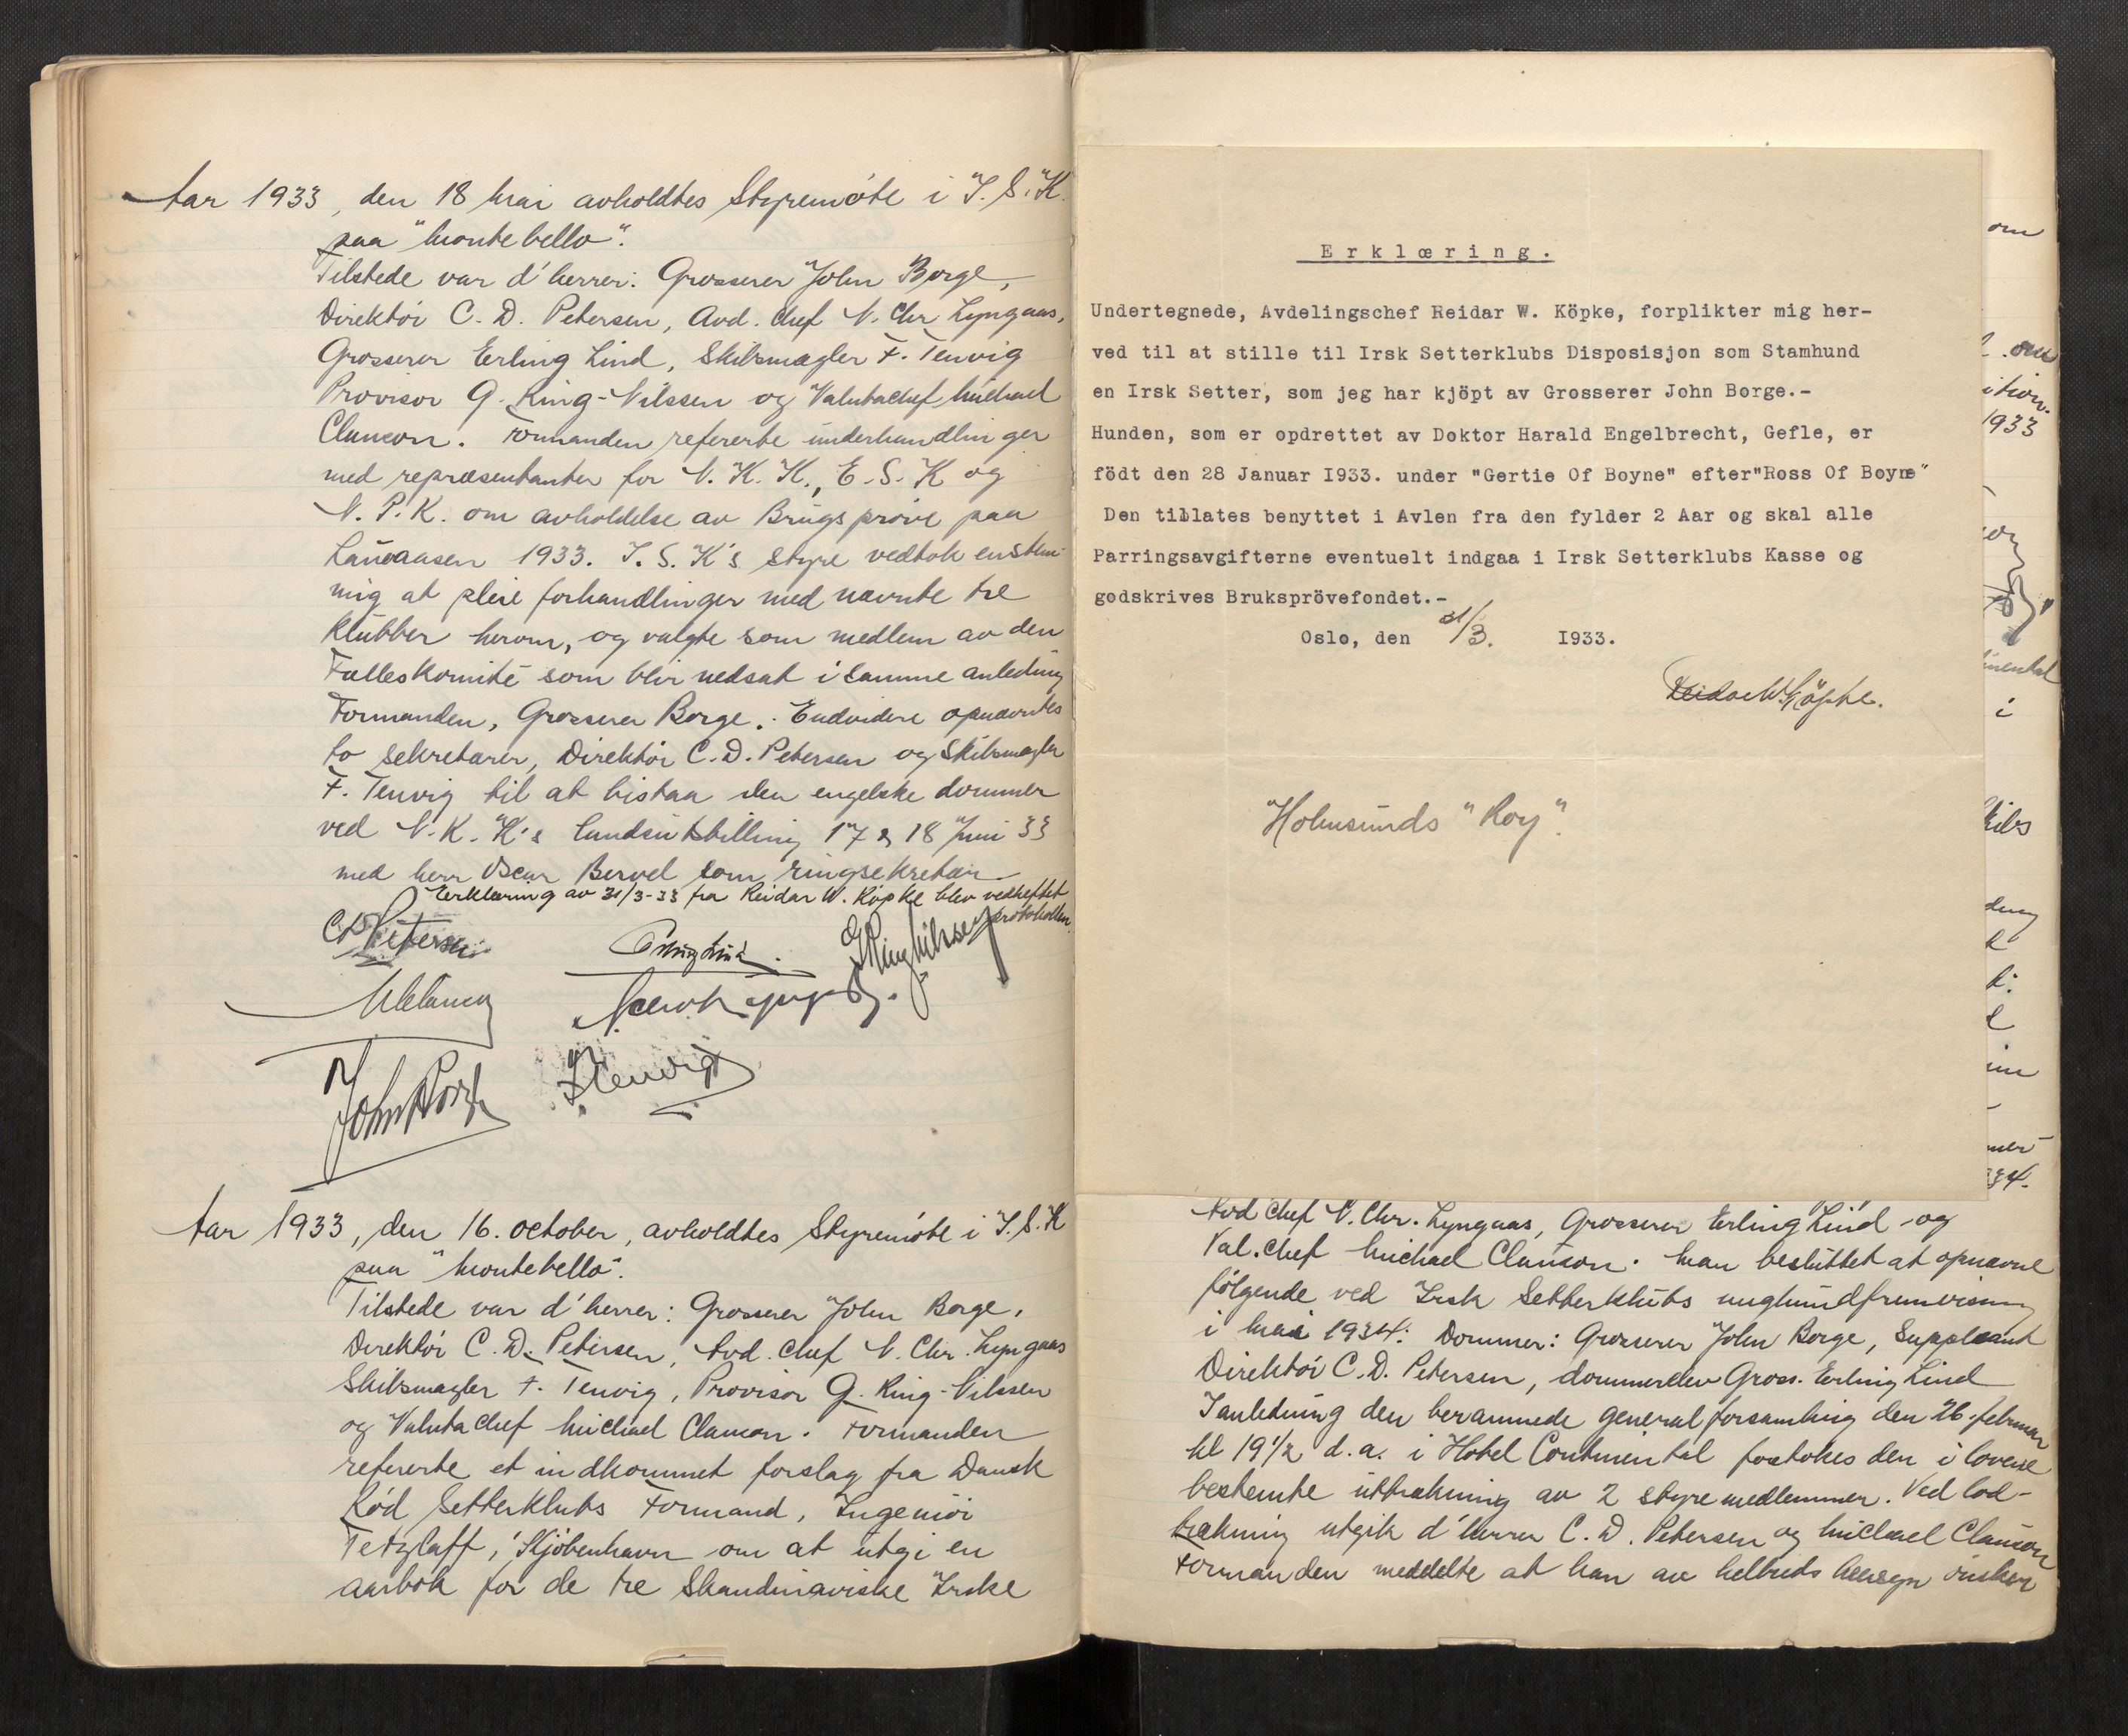 Aar 1933, den 18 Mai avholdtes Styremöte i I.S.K.
paa "Montebello".
Tilstede var d'herrer: Grosserer John Borge,
Direktör C. D. Petersen, Avd. Chef N. Chr Lyngaas,
Grosserer Erling Lind, Skibsmægler F. Tenvig
Provisor G. Ring-Nilssen og Valutachef Michael
Clauson. Formanden refererte underhandlinger
med repræsentanter for N.K.K., E.S.K og
N.P.K. om avholdelse av Brugspröve paa
1933. I.S.K's Styre vedtok enstem-
mig at pleie forhandlinger med nævnte tre
Klubber herom, og valgte som medlem av den
Fælleskomité som blir nedsat i samme anledning
Formanden, Grosserer Borge. Endvidere opnævntes
to sekretærer, Direktör C.D. Petersen og Skibsmægler
F. Tenvig til at bistaa den engelske dommer
ved N.K.K's Landsutstilling 17 & 18 Juni 33
med herr Oscar Bervel som ringsekretær
Erklæring av 31/3-33 fra Reidar W. Köpke blev vedheftet
protokollen.
C D Petersen
Erling Lind.
G Ring Nilssen
M Clauson
N. Chr. Lyngaas.
John Borge
F Tenvig
Aar 1933, den 16. october, avholdtes Styremöte i I.S.K
paa "Montebello".
Tilstede var d'herrer: Grosserer John Borge,
Direktör C. D. Petersen, Avd. Chef N. Chr. Lyngaas
Skibsmægler F. Tenvig, Provisor G. Ring-Nilssen
og Valutachef Michael Clauson. Formanden
refererte et indkommet forslag fra Dansk
Röd Setterklubs Formand, Ingeniör
Tetzlaff, Kjöbenhavn om at utgi en
aarbok for de tre Skandinaviske Irske
Erklæring.
Undertegnede, Avdelingschef Reidar W. Köpke, forplikter mig her-
ved til at stille til Irsk Setterklubs Disposisjon som Stamhund
en Irsk Setter, som jeg har kjöpt av Grosserer John Borge.-
Hunden, som er opdrettet av Doktor Harald Engelbrecht, Gefle, er
födt den 28 Januar I933. under "Gertie Of Boyne" efter"Ross Of Boyne"
Den tillates benyttet i Avlen fra den fylder 2 Aar og skal alle
Parringsavgifterne eventuelt indgaa i Irsk Setterklubs Kasse og
godskrives Bruksprövefondet.-
Oslo, den 31/3. I933.
Reidar W. Köpke.
Holmsunds "Roy".
om
1933
i
34.
Avd Chef N. Chr. Lyngaas, Grosserer Erling Lind og
Val. Chef Michael Clauson. Man besluttet at opnævne
fölgende ved Irsk Setterklubs unghundfremvisning
i Mai 1934: Dommer: Grosserer John Borge, Suppleant
Direktör C.D. Petersen, dommerelev Gross. Erling Lind
I anledning den berammede generalforsamling den 26. februar
kl 19 1/2 d.a. i Hotel Continental foretokes den i lovene
bestemte uttrækning av 2 styremedlemmer. Ved lod-
trækning utgik d'herrer C. D. Petersen og Michael Clauson
Formanden meddelte at han av helbreds hensyn önsker